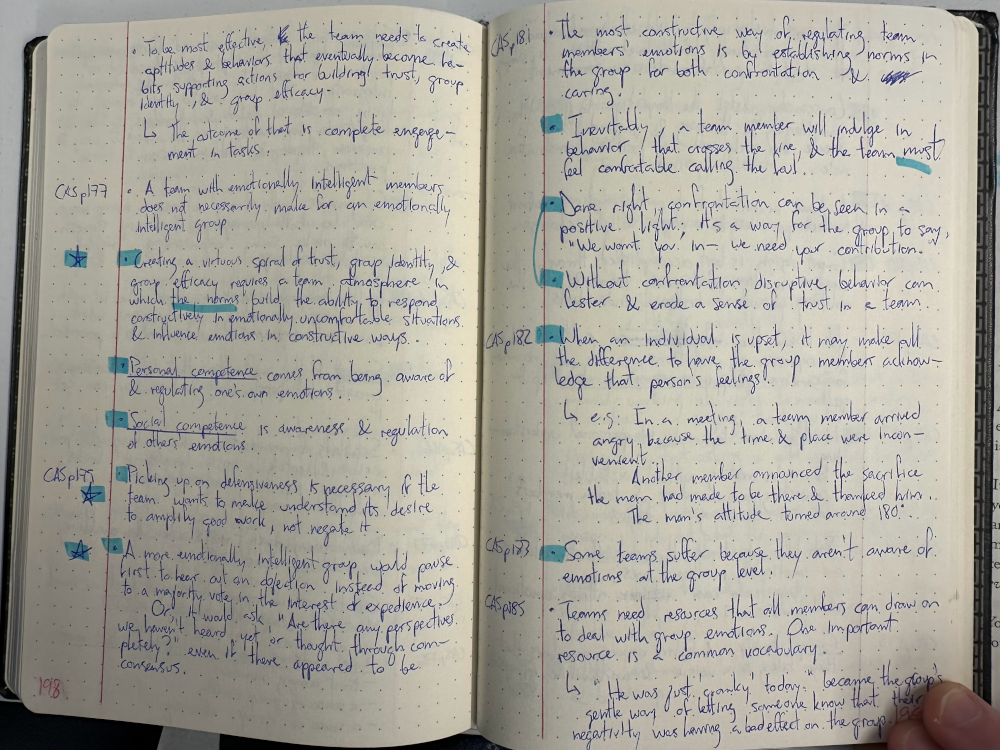 • To be most effective, the team needs to create
aptitudes & behaviors that eventually become ha-
bits supporting actions for building trust, group
identity, & group efficacy.
↳ The outcome of that is complete engage-
ment in tasks.
CAS p177 • A team with emotionally intelligent members
does not necessarily make for an emotionally
intelligent group
☆ • Creating a virtuous spiral of trust, group identity, &
group efficacy requires a team atmosphere in
which the norms build the ability to respond
constructively in emotionally uncomfortable situations
& influence emotions in constructive ways.
• Personal competence comes from being aware of
& regulating one's own emotions.
• Social competence is awareness & regulation
of others' emotions.
CAS p179 • Picking up on defensiveness is necessary if the
☆ team wants to make understood its desire
to amplify good work, not negate it.
☆ • A more emotionally intelligent group would pause
first to hear out an objection instead of moving
to a majority vote in the interest of expedience.
Or it would ask, "Are there any perspectives
we haven't heard yet or thought through com-
pletely?" even if there appeared to be
consensus.
198
CAS p181 • The most constructive way of regulating team
members' emotions is by establishing norms in
the group for both confrontation &
caring.
• Inevitably, a team member will indulge in
behavior that crosses the line, & the team must
feel comfortable calling the foul.
• Done right, confrontation can be seen in a
positive light; it's a way for the group to say,
"We want you in— we need your contribution."
• Without confrontation, disruptive behavior can
fester & erode a sense of trust in a team.
CAS p182 • When an individual is upset, it may make all
the difference to have the group members acknow-
ledge that person's feelings.
↳ e.g.: In a meeting, a team member arrived
angry because the time & place were incon-
venient.
Another member announced the sacrifice
the mem. had made to be there & thanked him.
The man's attitude turned around 180°.
CAS p183 • Some teams suffer because they aren't aware of
emotions at the group level.
CAS p185 • Teams need resources that all members can draw on
to deal with group emotions. One important
resource is a common vocabulary.
↳ "He was just 'cranky' today." became the group's
gentle way of letting someone know that their
negativity was having a bad effect on the group.